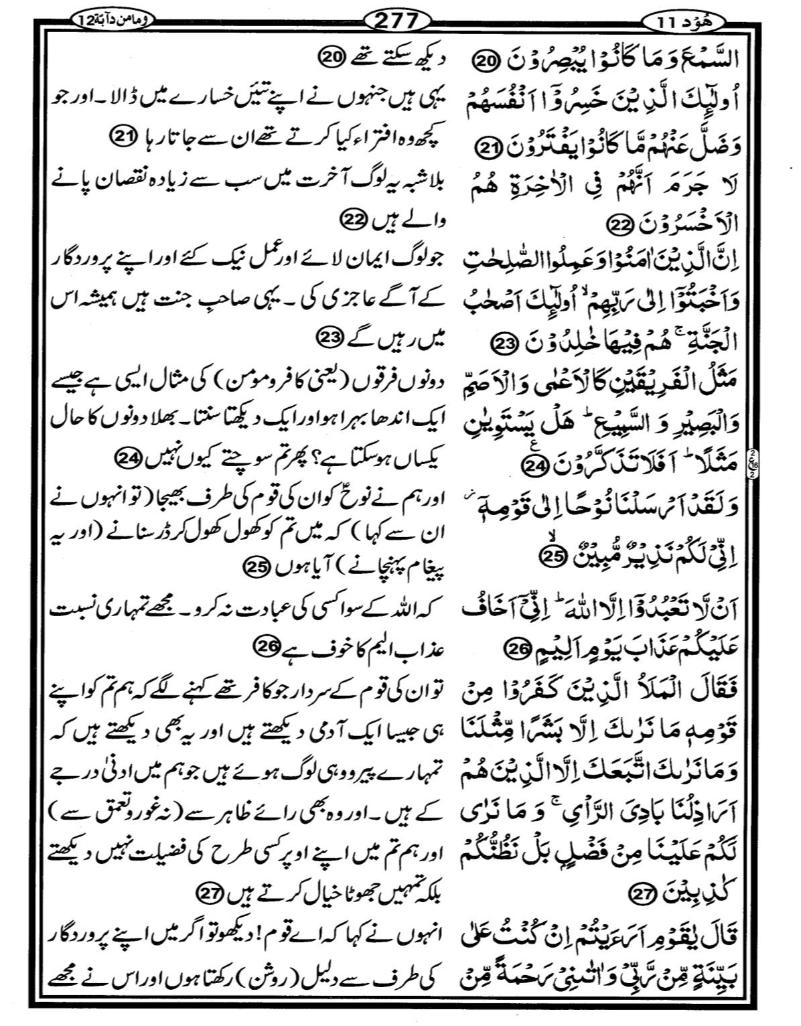 هُوْد 11
277
وَمَا مِنْ دَآبَّة 12
السَّمْعَ وَمَا كَانُوْا يُبْصِرُوْنَ ⑳
اُولٰٓئِكَ الَّذِيْنَ خَسِرُوْٓا اَنْفُسَهُمْ
وَضَلَّ عَنْهُمْ مَّا كَانُوْا يَفْتَرُوْنَ ㉑
لَا جَرَمَ اَنَّهُمْ فِى الْاٰخِرَةِ هُمُ
الْاَخْسَرُوْنَ ㉒
اِنَّ الَّذِيْنَ اٰمَنُوْا وَعَمِلُوا الصّٰلِحٰتِ
وَاَخْبَتُوْٓا اِلٰى رَبِّهِمْ ۙ اُولٰٓئِكَ اَصْحٰبُ
الْجَنَّةِ ۚ هُمْ فِيْهَا خٰلِدُوْنَ ㉓
مَثَلُ الْفَرِيْقَيْنِ كَالْاَعْمٰى وَالْاَصَمِّ
وَالْبَصِيْرِ وَ السَّمِيْعِ ؕ هَلْ يَسْتَوِيٰنِ
مَثَلًا ؕ اَفَلَا تَذَكَّرُوْنَ ㉔ ع
وَلَقَدْ اَرْسَلْنَا نُوْحًا اِلٰى قَوْمِهٖٓ ز
اِنِّىْ لَكُمْ نَذِيْرٌ مُّبِيْنٌ ۙ ㉕
اَنْ لَّا تَعْبُدُوْٓا اِلَّا اللّٰهَ ؕ اِنِّىْٓ اَخَافُ
عَلَيْكُمْ عَذَابَ يَوْمٍ اَلِيْمٍ ㉖
فَقَالَ الْمَلَاُ الَّذِيْنَ كَفَرُوْا مِنْ
قَوْمِهٖ مَا نَرٰىكَ اِلَّا بَشَرًا مِّثْلَنَا
وَمَا نَرٰىكَ اتَّبَعَكَ اِلَّا الَّذِيْنَ هُمْ
اَرَاذِلُنَا بَادِىَ الرَّاْىِ ۚ وَ مَا نَرٰى
لَكُمْ عَلَيْنَا مِنْ فَضْلٍۭ بَلْ نَظُنُّكُمْ
كٰذِبِيْنَ ㉗
قَالَ يٰقَوْمِ اَرَءَيْتُمْ اِنْ كُنْتُ عَلٰى
بَيِّنَةٍ مِّنْ رَّبِّىْ وَاٰتٰىنِىْ رَحْمَةً مِّنْ
دیکھ سکتے تھے ⑳
یہی ہیں جنہوں نے اپنے تئیں خسارے میں ڈالا۔ اور جو
کچھ وہ افتراء کیا کرتے تھے ان سے جاتا رہا ㉑
بلاشبہ یہ لوگ آخرت میں سب سے زیادہ نقصان پانے
والے ہیں ㉒
جو لوگ ایمان لائے اور عمل نیک کئے اور اپنے پروردگار
کے آگے عاجزی کی۔ یہی صاحبِ جنت ہیں ہمیشہ اس
میں رہیں گے ㉓
دونوں فرقوں (یعنی کافر ومومن) کی مثال ایسی ہے جیسے
ایک اندھا بہرا ہو اور ایک دیکھتا سنتا۔ بھلا دونوں کا حال
یکساں ہوسکتا ہے؟ پھر تم سوچتے کیوں نہیں ㉔
اور ہم نے نوحؑ کو ان کی قوم کی طرف بھیجا (تو انہوں نے
ان سے کہا) کہ میں تم کو کھول کھول کر ڈر سنانے (اور یہ
پیغام پہنچانے) آیا ہوں ㉕
کہ اللہ کے سوا کسی کی عبادت نہ کرو۔ مجھے تمہاری نسبت
عذاب الیم کا خوف ہے ㉖
تو ان کی قوم کے سردار جو کافر تھے کہنے لگے کہ ہم تم کو اپنے
ہی جیسا ایک آدمی دیکھتے ہیں اور یہ بھی دیکھتے ہیں کہ
تمہارے پیرو وہی لوگ ہوئے ہیں جو ہم میں ادنیٰ درجے
کے ہیں۔ اور وہ بھی رائے ظاہر سے (نہ غور وتعمق سے)
اور ہم تم میں اپنے اوپر کسی طرح کی فضیلت نہیں دیکھتے
بلکہ تمہیں جھوٹا خیال کرتے ہیں ㉗
انہوں نے کہا کہ اے قوم! دیکھو تو اگر میں اپنے پروردگار
کی طرف سے دلیل (روشن) رکھتا ہوں اور اس نے مجھے